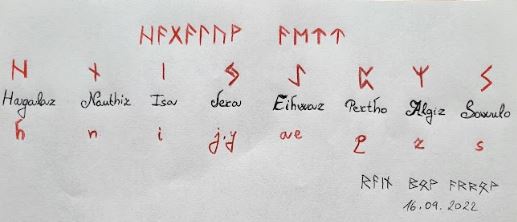 ᚺᚨᚷᚨᛚᚢᚹ ᚨᛖᛏᛏ
ᚺ ᚾ ᛁ ᛃ ᛇ ᛈ ᛉ ᛊ
Hagalaz Nauthiz Isa Jera Eihwaz Pertho Algiz Sowulo
h n i j,y ae p z s
ᚱᚨᛁᚾ ᛒᛟᚹ ᚨᚱᚱᛟᚹ
16.09.2022